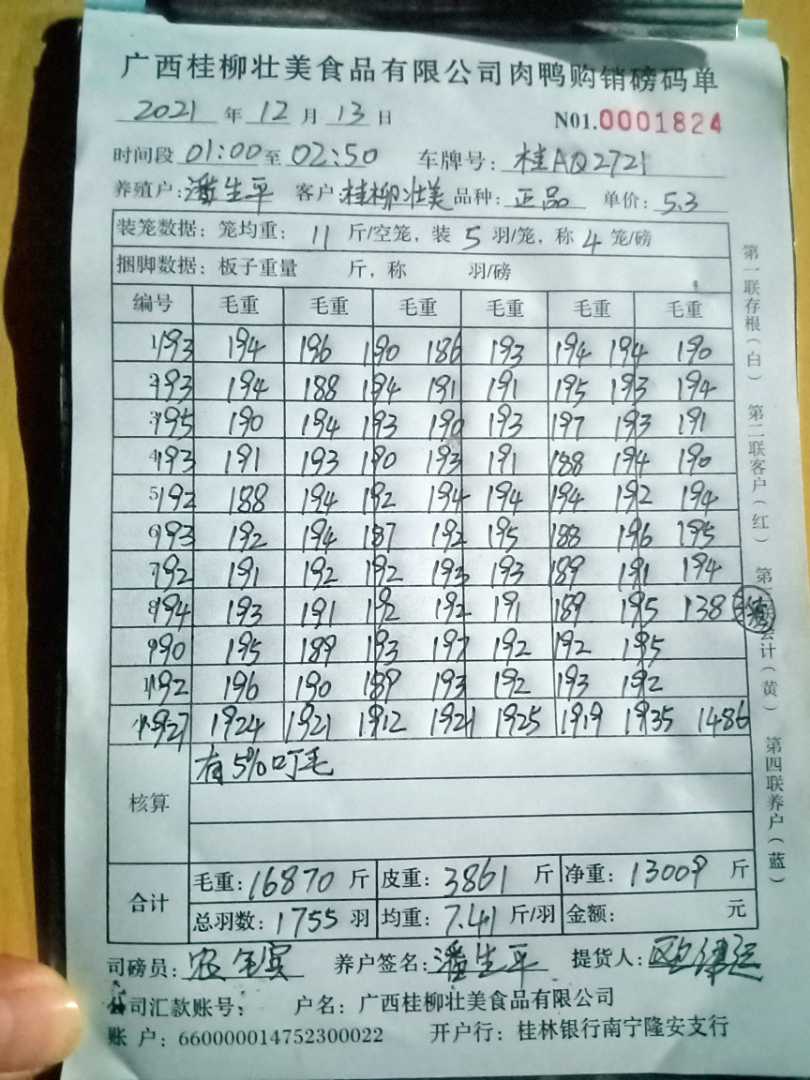 广西桂柳壮美食品有限公司肉鸭购销磅码单
2021 年 12 月 13 日 N01.0001824
时间段 01:00 至 02:50 车牌号: 桂AQ2721
养殖户: 潘生平 客户: 桂柳壮美 品种: 正品 单价: 5.3
装笼数据: 笼均重: 11 斤/空笼, 装 5 羽/笼, 称 4 笼/磅
捆脚数据: 板子重量 斤, 称 羽/磅
编号 毛重 毛重 毛重 毛重 毛重 毛重
1 193 194 196 190 186 193 194 194 190
2 193 194 188 194 191 191 195 193 194
3 195 190 194 193 190 193 197 193 191
4 193 191 193 190 193 191 188 194 190
5 192 188 194 192 194 194 194 192 194
6 193 192 194 187 192 195 188 196 195
7 192 191 192 192 193 193 189 191 194
8 194 193 191 192 192 191 189 195 138
9 190 195 189 193 197 192 192 195
192 196 190 189 193 192 193 192
1927 1924 1921 1912 1921 1925 1919 1935 1486
核算 有5%叮毛
合计 毛重: 16870 斤 皮重: 3861 斤 净重: 13009 斤
总羽数: 1755 羽 均重: 7.41 斤/羽 金额: 元
司磅员: 养户签名: 潘生平 提货人:
公司汇款账号: 户名: 广西桂柳壮美食品有限公司
账 户: 660000014752300022 开户行: 桂林银行南宁隆安支行
第一联存根(白) 第二联客户(红) 第三联会计(黄) 第四联养户(蓝)